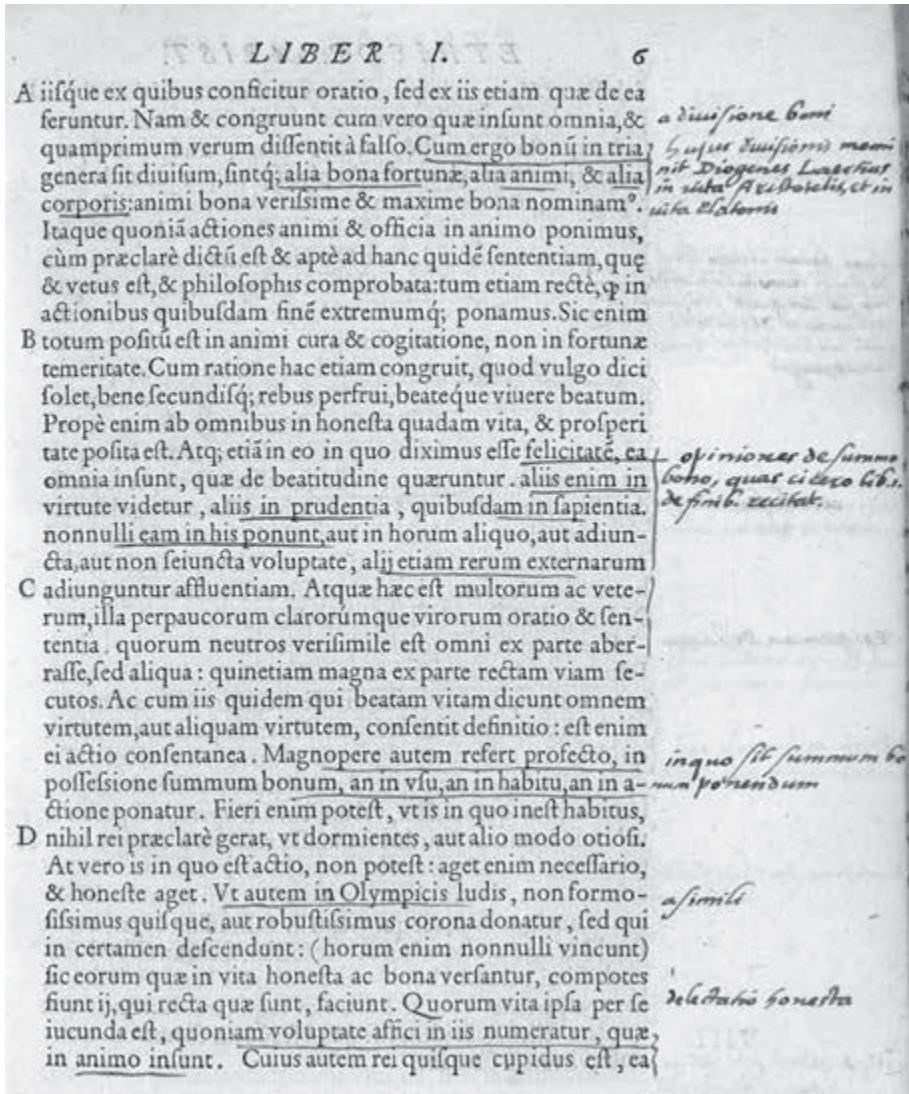 LIBER I. 6
A iiſque ex quibus conficitur oratio, ſed ex iis etiam quæ de ea
feruntur. Nam & congruunt cum vero quæ inſunt omnia, &
quamprimum verum diſſentit à falſo. Cum ergo bonū in tria
genera ſit diuiſum, ſintq́; alia bona fortunæ, alia animi, & alia
corporis: animi bona veriſsime & maxime bona nominamꝰ.
Itaque quoniã actiones animi & officia in animo ponimus,
cùm præclarè dictū eſt & aptè ad hanc quidẽ ſententiam, quę
& vetus eſt, & philoſophis comprobata: tum etiam rectè, ꝙ in
actionibus quibuſdam finẽ extremumq́; ponamus. Sic enim
B totum poſitū eſt in animi cura & cogitatione, non in fortunæ
temeritate. Cum ratione hac etiam congruit, quod vulgo dici
ſolet, bene ſecundiſq́; rebus perfrui, beateque viuere beatum.
Propè enim ab omnibus in honeſta quadam vita, & proſperi
tate poſita eſt. Atq; etiã in eo in quo diximus eſſe felicitatẽ, ea
omnia inſunt, quæ de beatitudine quæruntur. aliis enim in
virtute videtur, aliis in prudentia, quibuſdam in ſapientia.
nonnulli eam in his ponunt, aut in horum aliquo, aut adiun-
cta, aut non ſeiuncta voluptate, alij etiam rerum externarum
C adiunguntur affluentiam. Atque hæc eſt multorum ac vete-
rum, illa perpaucorum clarorúmque virorum oratio & ſen-
tentia. quorum neutros veriſimile eſt omni ex parte aber-
raſſe, ſed aliqua: quinetiam magna ex parte rectam viam ſe-
cutos. Ac cum iis quidem qui beatam vitam dicunt omnem
virtutem, aut aliquam virtutem, conſentit definitio: eſt enim
ei actio conſentanea. Magnopere autem refert profecto, in
poſſeſsione ſummum bonum, an in vſu, an in habitu, an in a-
ctione ponatur. Fieri enim poteſt, vt is in quo ineſt habitus,
D nihil rei præclarè gerat, vt dormientes, aut alio modo otioſi.
At vero is in quo eſt actio, non poteſt: aget enim neceſſario,
& honeſte aget. Vt autem in Olympicis ludis, non formo-
ſiſsimus quiſque, aut robuſtiſsimus corona donatur, ſed qui
in certamen deſcendunt: (horum enim nonnulli vincunt)
ſic eorum quæ in vita honeſta ac bona verſantur, compotes
fiunt ij, qui recta quæ ſunt, faciunt. Quorum vita ipſa per ſe
iucunda eſt, quoniam voluptate affici in iis numeratur, quæ
in animo inſunt. Cuius autem rei quiſque cupidus eſt, ea
a diuiſione boni
hujus diuiſionis memi
nit Diogenes Laertius
in uita Ariſtotelis, et in
uita Platonis
opiniones de ſummo
bono, quas cicero lib. 1.
de finib. recitat.
in quo ſit ſummum bo
num ponendum
a ſimili
delectatio honeſta